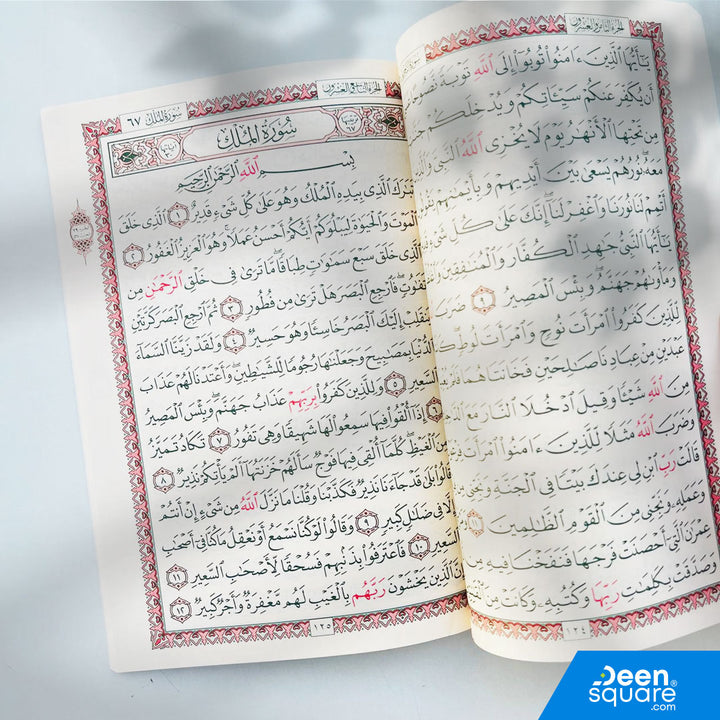 الجزء الثامن والعشرون
يَٰٓأَيُّهَا ٱلَّذِينَ ءَامَنُوا۟ تُوبُوٓا۟ إِلَى ٱللَّهِ تَوْبَةً
أَن يُكَفِّرَ عَنكُمْ سَيِّـَٔاتِكُمْ وَيُدْخِلَكُمْ
مِن تَحْتِهَا ٱلْأَنْهَٰرُ يَوْمَ لَا يُخْزِى ٱللَّهُ ٱلنَّبِىَّ
مَعَهُۥ نُورُهُمْ يَسْعَىٰ بَيْنَ أَيْدِيهِمْ وَبِأَيْمَٰنِهِمْ
أَتْمِمْ لَنَا نُورَنَا وَٱغْفِرْ لَنَآ إِنَّكَ عَلَىٰ كُلِّ
يَٰٓأَيُّهَا ٱلنَّبِىُّ جَٰهِدِ ٱلْكُفَّارَ وَٱلْمُنَٰفِقِينَ
وَمَأْوَىٰهُمْ جَهَنَّمُ وَبِئْسَ ٱلْمَصِيرُ ٩ ضَرَبَ
لِّلَّذِينَ كَفَرُوا۟ ٱمْرَأَتَ نُوحٍ وَٱمْرَأَتَ لُوطٍ
عَبْدَيْنِ مِنْ عِبَادِنَا صَٰلِحَيْنِ فَخَانَتَاهُمَا
مِنَ ٱللَّهِ شَيْـًٔا وَقِيلَ ٱدْخُلَا ٱلنَّارَ مَعَ
وَضَرَبَ ٱللَّهُ مَثَلًا لِّلَّذِينَ ءَامَنُوا۟ ٱمْرَأَتَ
قَالَتْ رَبِّ ٱبْنِ لِى عِندَكَ بَيْتًا فِى ٱلْجَنَّةِ وَنَجِّنِى
وَعَمَلِهِۦ وَنَجِّنِى مِنَ ٱلْقَوْمِ ٱلظَّٰلِمِينَ ١١
عِمْرَٰنَ ٱلَّتِىٓ أَحْصَنَتْ فَرْجَهَا فَنَفَخْنَا فِيهِ مِن
وَصَدَّقَتْ بِكَلِمَٰتِ رَبِّهَا وَكُتُبِهِۦ وَكَانَتْ مِنَ
١٢٤
الجزء التاسع والعشرون
سورة الملك ٦٧
سُورَةُ الْمُلْكِ
بِسْمِ ٱللَّهِ ٱلرَّحْمَٰنِ ٱلرَّحِيمِ
تَبَٰرَكَ ٱلَّذِى بِيَدِهِ ٱلْمُلْكُ وَهُوَ عَلَىٰ كُلِّ شَىْءٍ قَدِيرٌ ١ ٱلَّذِى خَلَقَ
ٱلْمَوْتَ وَٱلْحَيَوٰةَ لِيَبْلُوَكُمْ أَيُّكُمْ أَحْسَنُ عَمَلًا وَهُوَ ٱلْعَزِيزُ ٱلْغَفُورُ ٢
ٱلَّذِى خَلَقَ سَبْعَ سَمَٰوَٰتٍ طِبَاقًا مَّا تَرَىٰ فِى خَلْقِ ٱلرَّحْمَٰنِ مِن
تَفَٰوُتٍ فَٱرْجِعِ ٱلْبَصَرَ هَلْ تَرَىٰ مِن فُطُورٍ ٣ ثُمَّ ٱرْجِعِ ٱلْبَصَرَ كَرَّتَيْنِ
يَنقَلِبْ إِلَيْكَ ٱلْبَصَرُ خَاسِئًا وَهُوَ حَسِيرٌ ٤ وَلَقَدْ زَيَّنَّا ٱلسَّمَآءَ
ٱلدُّنْيَا بِمَصَٰبِيحَ وَجَعَلْنَٰهَا رُجُومًا لِّلشَّيَٰطِينِ وَأَعْتَدْنَا لَهُمْ عَذَابَ
ٱلسَّعِيرِ ٥ وَلِلَّذِينَ كَفَرُوا۟ بِرَبِّهِمْ عَذَابُ جَهَنَّمَ وَبِئْسَ ٱلْمَصِيرُ
٦ إِذَآ أُلْقُوا۟ فِيهَا سَمِعُوا۟ لَهَا شَهِيقًا وَهِىَ تَفُورُ ٧ تَكَادُ تَمَيَّزُ
مِنَ ٱلْغَيْظِ كُلَّمَآ أُلْقِىَ فِيهَا فَوْجٌ سَأَلَهُمْ خَزَنَتُهَآ أَلَمْ يَأْتِكُمْ نَذِيرٌ ٨
قَالُوا۟ بَلَىٰ قَدْ جَآءَنَا نَذِيرٌ فَكَذَّبْنَا وَقُلْنَا مَا نَزَّلَ ٱللَّهُ مِن شَىْءٍ إِنْ أَنتُمْ
إِلَّا فِى ضَلَٰلٍ كَبِيرٍ ٩ وَقَالُوا۟ لَوْ كُنَّا نَسْمَعُ أَوْ نَعْقِلُ مَا كُنَّا فِىٓ أَصْحَٰبِ
ٱلسَّعِيرِ ١٠ فَٱعْتَرَفُوا۟ بِذَنۢبِهِمْ فَسُحْقًا لِّأَصْحَٰبِ ٱلسَّعِيرِ ١١
إِنَّ ٱلَّذِينَ يَخْشَوْنَ رَبَّهُم بِٱلْغَيْبِ لَهُم مَّغْفِرَةٌ وَأَجْرٌ كَبِيرٌ ١٢
١٢٥
Deen
square®
.com